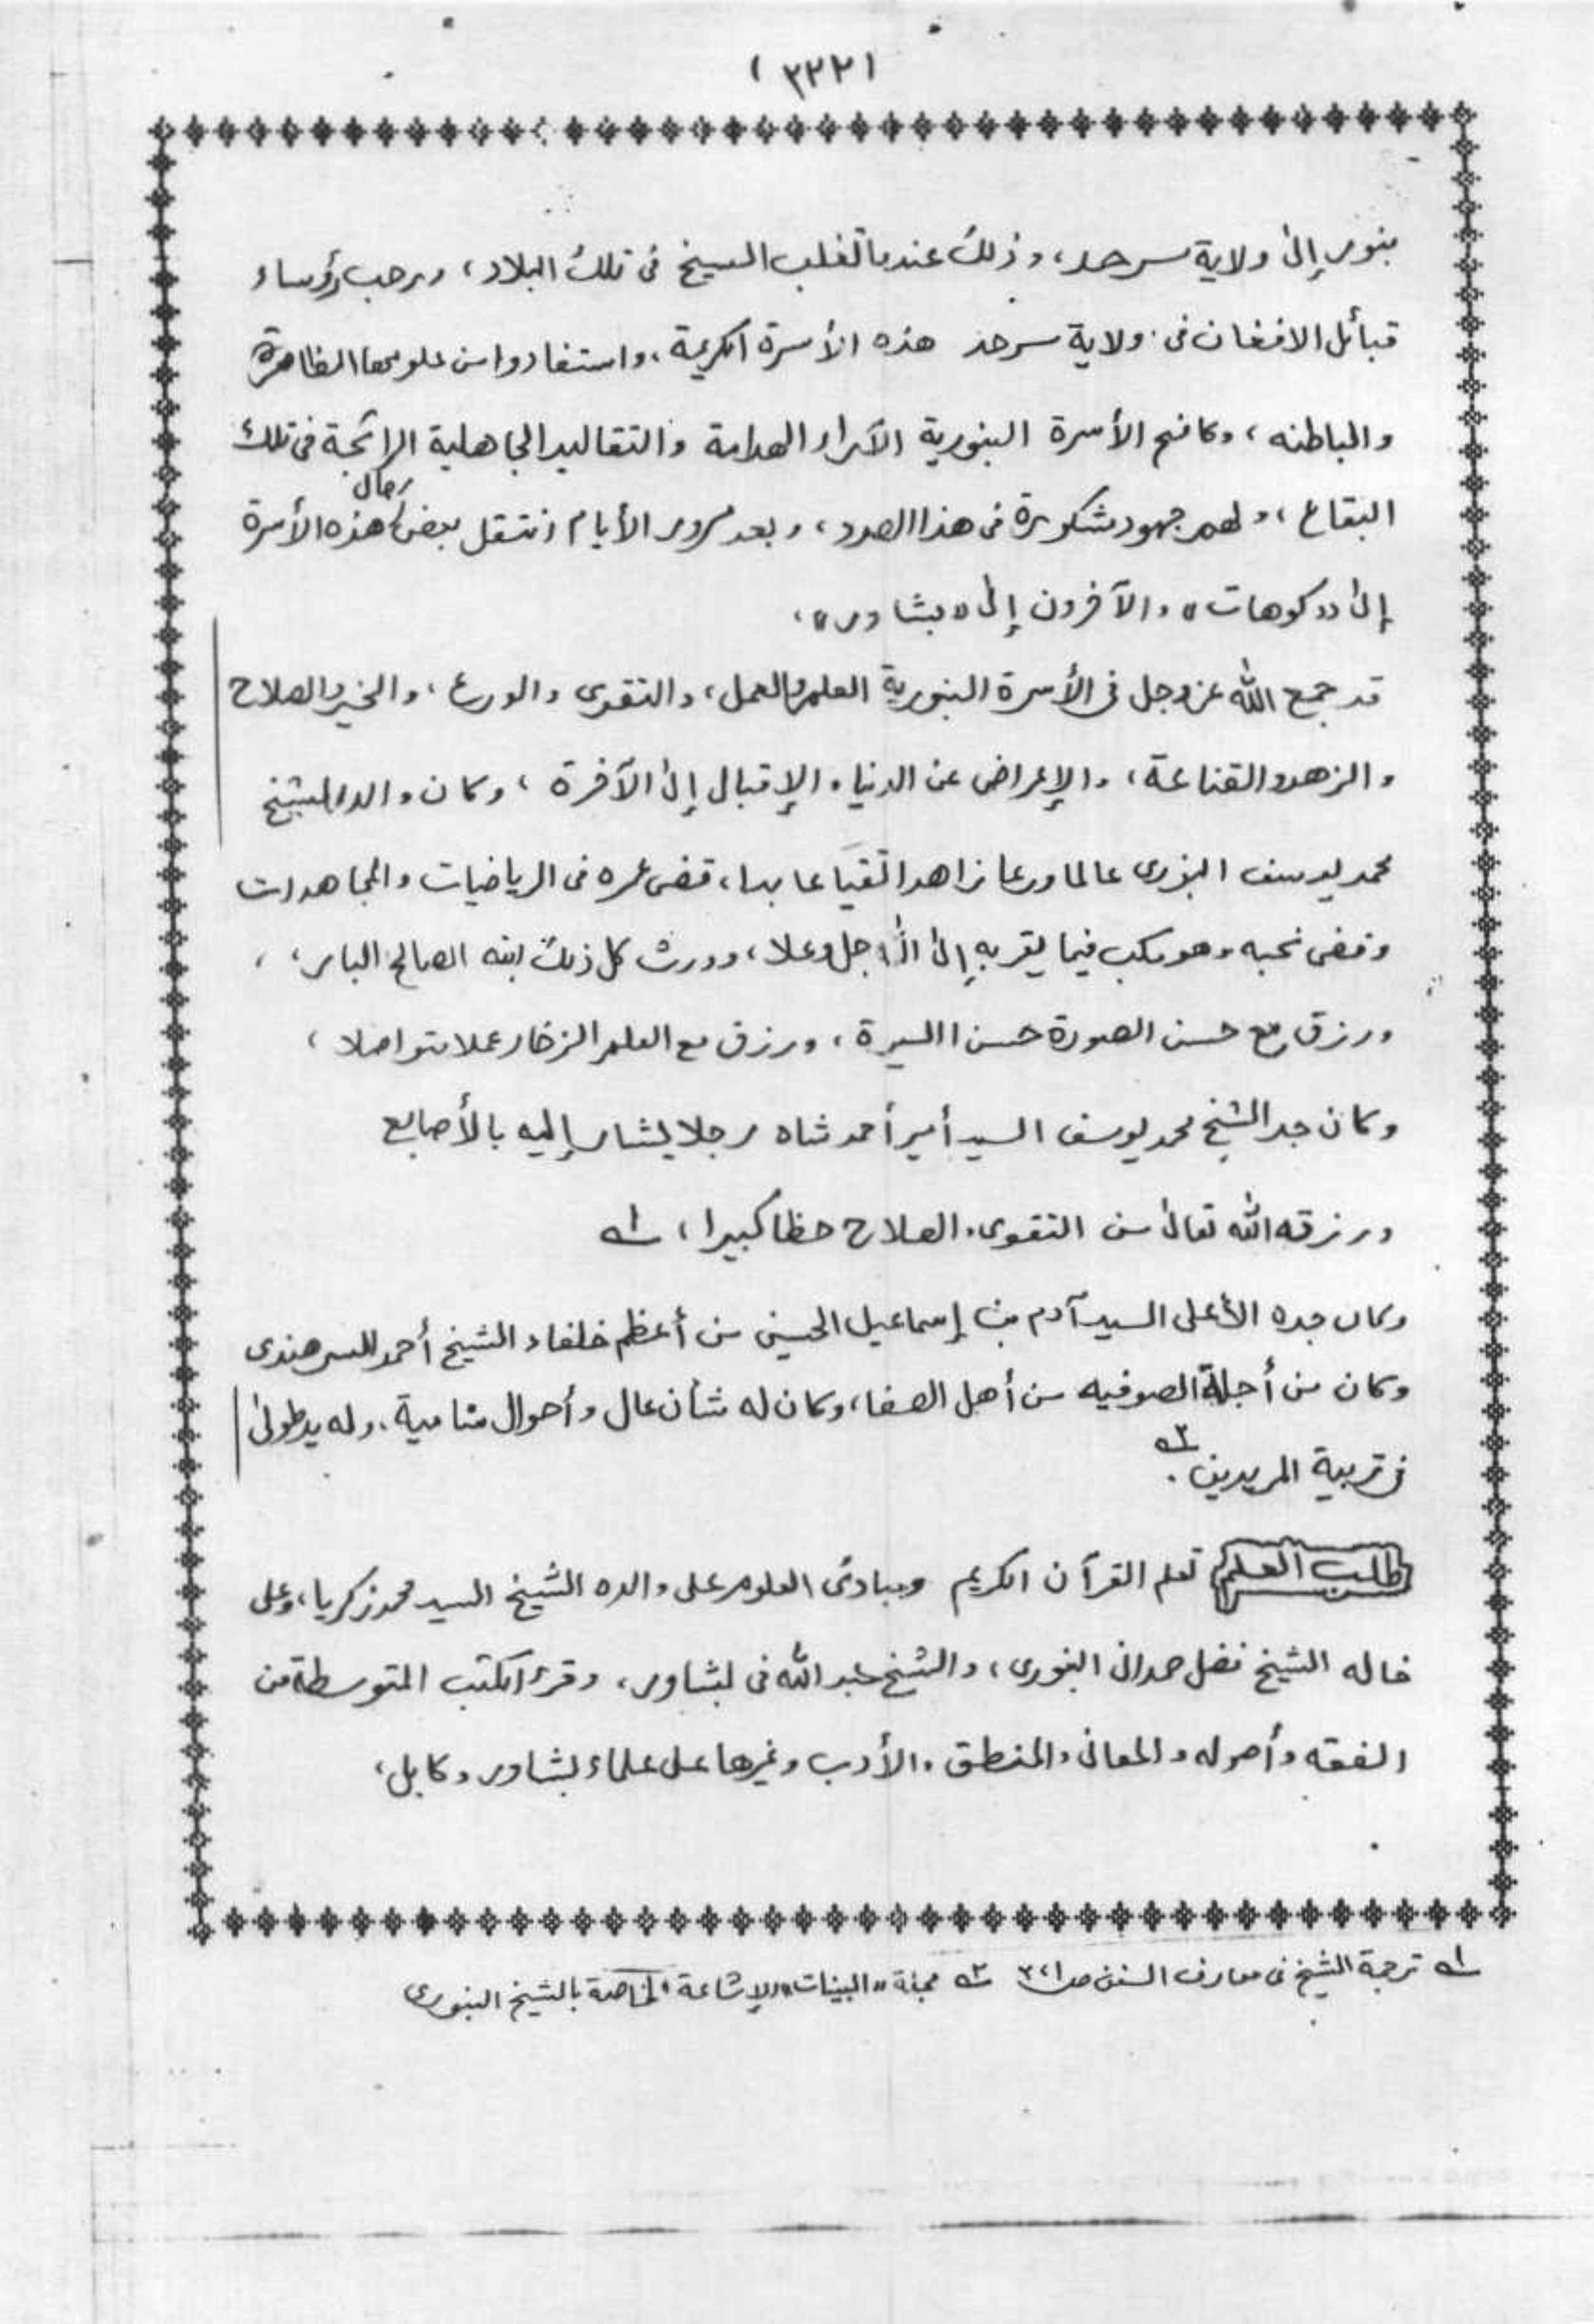 (٣٣٢)
بنور إلى ولاية سرحد، وذلك عندما تغلب السيخ في تلك البلاد، ورحب رؤساء
قبائل الافغان في ولاية سرحد هذه الأسرة الكريمة، واستفادوا من علومها الظاهرة
والباطنه، وكافح الأسرة البنورية الآراء الهدامة والتقاليد الجاهلية الرائجة في تلك
البقاع، ولهم جهود مشكورة في هذا الصدد، وبعد مرور الأيام انتقل بعض رجال هذه الأسرة
إلى «كوهات» والآخرون إلى «بشاور»،
قد جمع الله عزوجل في الأسرة البنورية العلم والعمل، والتقوى والورع، والخير والصلاح
والزهد والقناعة، والإعراض عن الدنيا والإقبال إلى الآخرة، وكان والد الشيخ
محمد يوسف البنوري عالما ورعا زاهدا تقيا عابدا، قضى عمره في الرياضيات والمجاهدات
وقضى نحبه وهو مكب فيما يقربه إلى الله جل وعلا، وورث كل ذلك ابنه الصالح البار،
ورزق مع حسن الصورة حسن السيرة، ورزق مع العلم الزخار عملا متواصلا،
وكان جد الشيخ محمد يوسف السيد أمير أحمد شاه رجلا يشار إليه بالأصابع
ورزقه الله تعالى من التقوى والصلاح حظا كبيرا، ١ـه
وكان جده الأعلى السيد آدم بن إسماعيل الحسيني من أعظم خلفاء الشيخ أحمد السرهندي
وكان من أجلة الصوفيه من أهل الصفا، وكان له شأن عال وأحوال متنامية، وله يد طولى
في تربية المريدين ٢ـه.
طلب العلم تعلم القرآن الكريم ومبادئ العلوم على والده الشيخ السيد محمد زكريا، وعلى
خاله الشيخ فضل صمداني البنوري، والشيخ عبد الله في بشاور، وقرء الكتب المتوسطة من
الفقه وأصوله والمعاني والمنطق والأدب وغيرها على علماء بشاور وكابل،
١ـه ترجمة الشيخ في معارف السنن ٢ـه مجلة «البينات» الإشاعة الخاصة بالشيخ البنوري